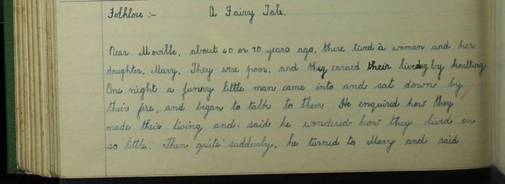 Folklore :- A Fairy Tale.
Near Moville, about 60 or 70 years ago, there lived a woman and her
daughter, Mary. They were poor, and they earned their living by
One night a funny little man came into and sat down by
their fire, and began to talk to them. He enquired how they
made their living and said he wondered how they lived on
so little. Then quite suddenly, he turned to Mary and said